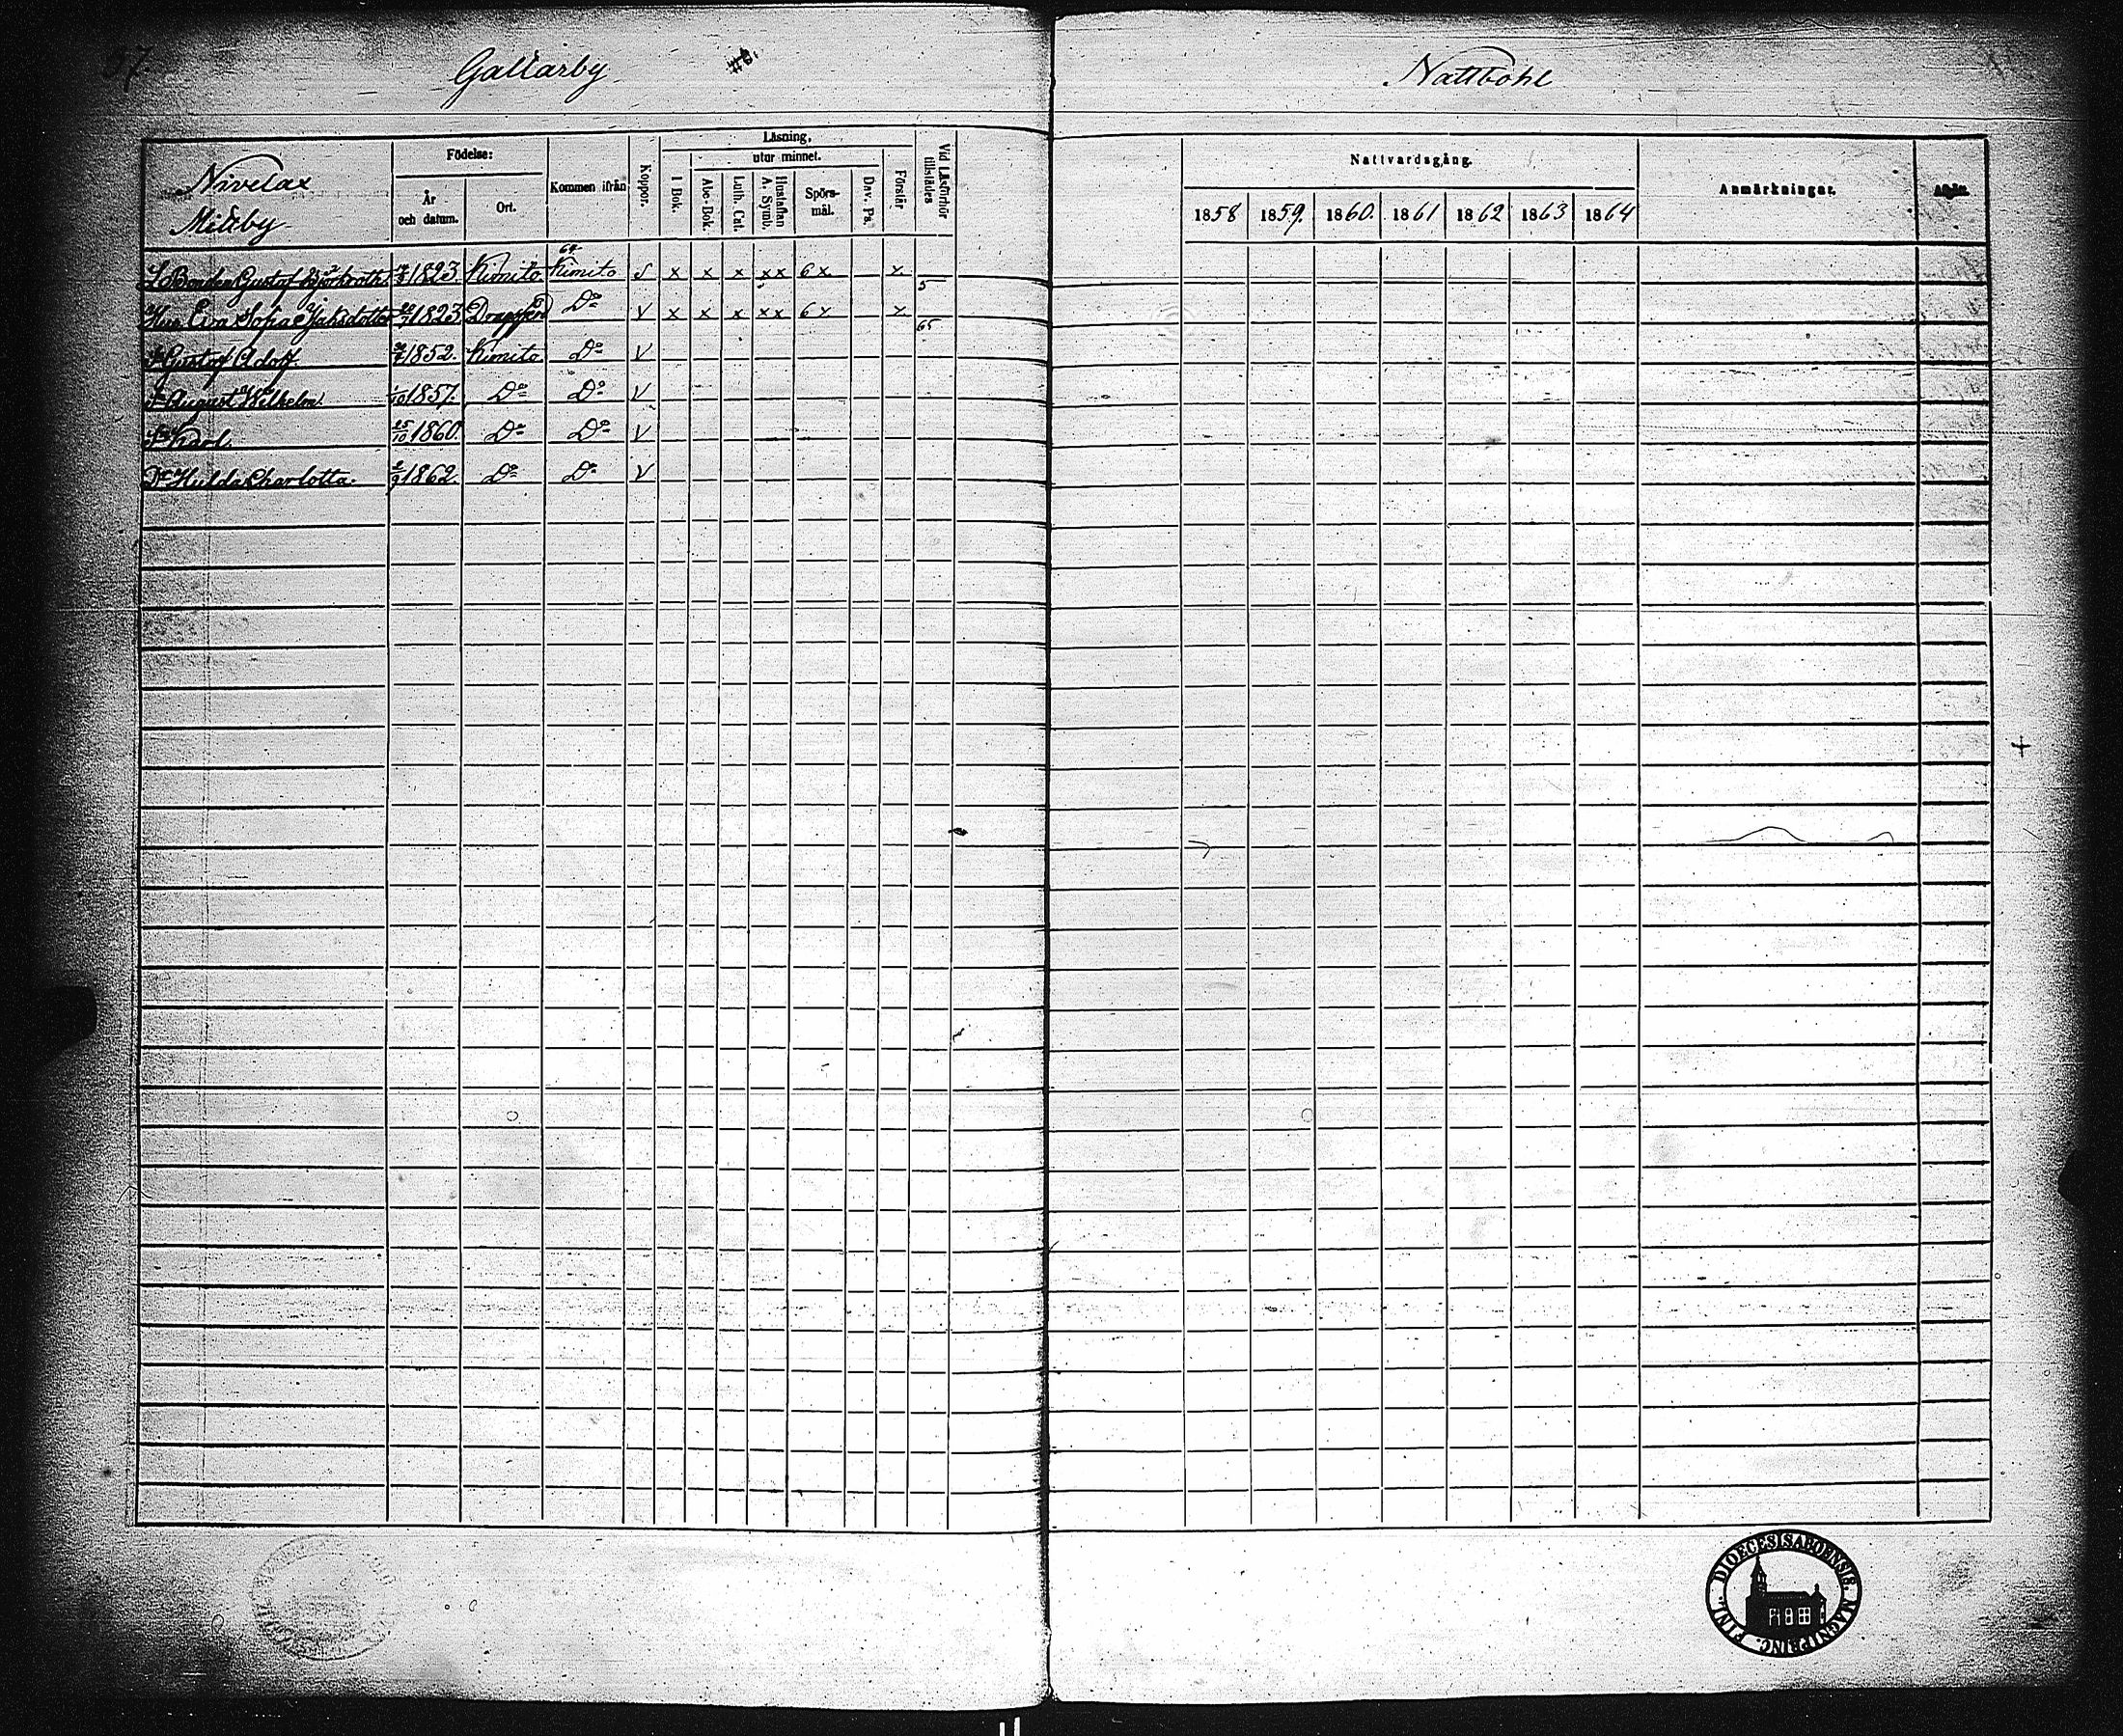 57
Gallarby
Nattböhl
Nivelax
Miälby
Födelse:
År och datum.
Ort.
Kommen ifrån
Koppor.
Läsning,
utur minnet.
I Bok.
Abc-Bok.
Luth. Cat.
Hustaflan A. Symb.
Spörs-mål.
Dav. Ps.
Förstår
Vid Läsförhör tillstädes
Nattvardsgång.
1858 1859. 1860. 1861 1862 1863 1864
Anmärkningar.
Bonden Gustaf Björkroth 1823. Kimito 64 Kimito x x x xx 6x x 5
Hu Eva Sofia Jaksdotter 1823 Dragsfj. Do V x x x xx 6x x 65
Sn Gustaf Adolf. 1852. Kimito Do V
Sn August Wilhelm. 1/10 1857. Do Do V
Sn Karl. 25/10 1860. Do Do V
Dr Hulda Charlotta. 2/9 1862. Do Do V
DIOECESIS ABOENSIS. MAGNI PRINC. FINL.